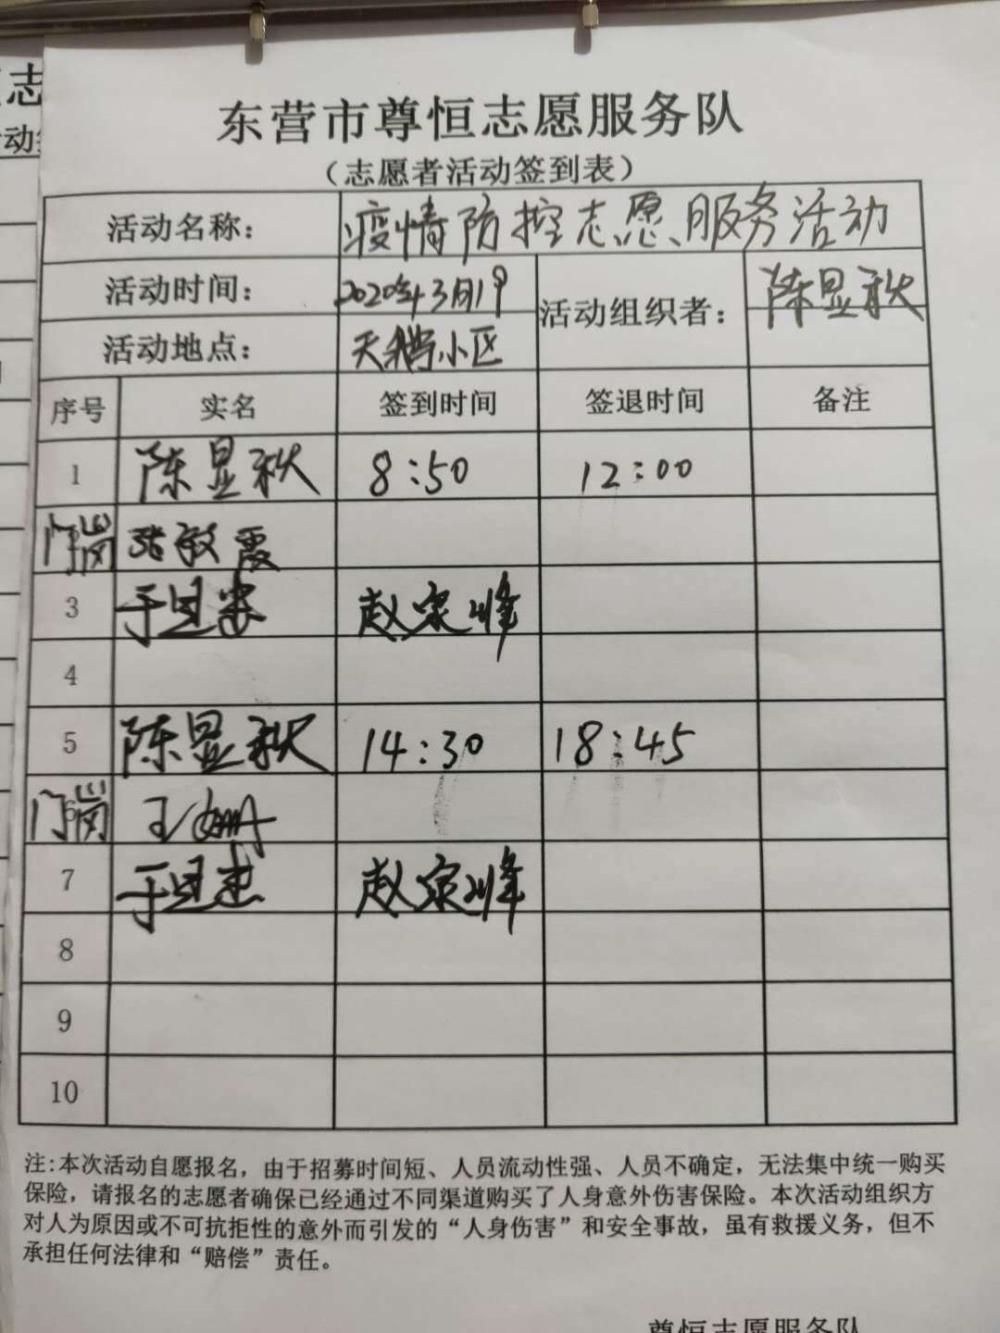 东营市尊恒志愿服务队
（志愿者活动签到表）
活动名称： 疫情防控志愿服务活动
活动时间： 2020年3月19 活动组织者： 陈显秋
活动地点： 天鹅小区
序号 实名 签到时间 签退时间 备注
1 陈显秋 8:50 12:00
门岗 张敏霞
3 赵宗峰
4
5 陈显秋 14:30 18:45
6 门岗 王
7 赵宗峰
8
9
10
注:本次活动自愿报名，由于招募时间短、人员流动性强、人员不确定，无法集中统一购买
保险，请报名的志愿者确保已经通过不同渠道购买了人身意外伤害保险。本次活动组织方
对人为原因或不可抗拒性的意外而引发的“人身伤害”和安全事故，虽有救援义务，但不
承担任何法律和“赔偿”责任。
尊恒志愿服务队